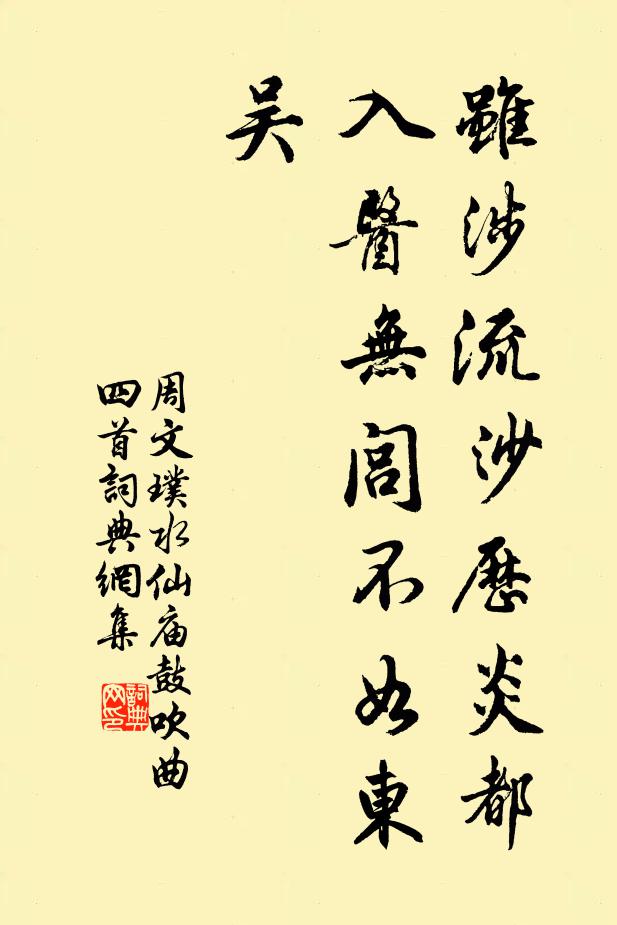 雖涉流沙歷炎都
入醫無閭不如東
吴
周文璞水仙庙鼓吹曲
四首詞典網集
詞典网印